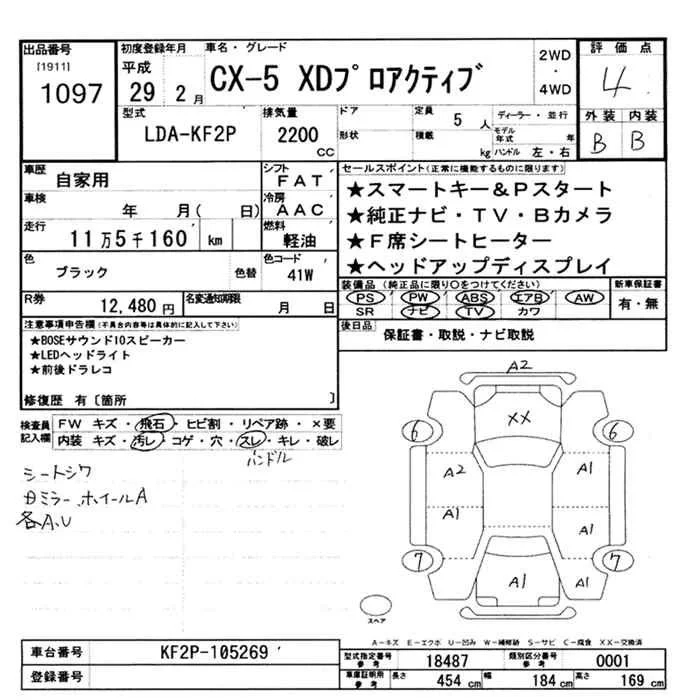 出品番号
[1911]
1097
初度登録年月
平成
29 2月
車名・グレード
CX-5 XDプロアクティブ
2WD
・
4WD
評価点
4
外装 内装
B B
型式
LDA-KF2P
排気量
2200
CC
ドア
形状
定員
5人
積載
kg
ディーラー・並行
モデル年式 年
ハンドル 左・右
車歴
自家用
シフト
FAT
車検
年 月( 日)
冷房
AAC
走行
11万5千160 km
燃料
軽油
色
ブラック
色替
色コード
41W
R券
12,480円
名変通知期限
月 日
セールスポイント(正常に機能するものに限ります)
★スマートキー&Pスタート
★純正ナビ・TV・Bカメラ
★F席シートヒーター
★ヘッドアップディスプレイ
装備品(純正品に限り○をつけてください)
PS PW ABS エアB AW
SR ナビ TV カワ
新車保証書
有・無
後日品
保証書・取説・ナビ取説
注意事項申告欄(不具合内容等は具体的に記入して下さい)
★BOSEサウンド10スピーカー
★LEDヘッドライト
★前後ドラレコ
修復歴 有〔箇所 〕
検査員
記入欄
FW キズ・飛石・ヒビ割・リペア跡・×要
内装 キズ・汚レ・コゲ・穴・スレ・キレ・破レ
ハンドル
シートシワ
ミラー、ホイールA
各A、U
A2
XX
6
6
A2
A1
A1
A1
7
7
A1
スペア
A-キズ E-エクボ U-凹み W-補修跡 S-サビ C-腐食 XX-交換済
車台番号
KF2P-105269
登録番号
型式指定番号
参考
18487
類別区分番号
参考
0001
車庫証明用
参考
長さ
454 cm
幅
184 cm
高さ
169 cm